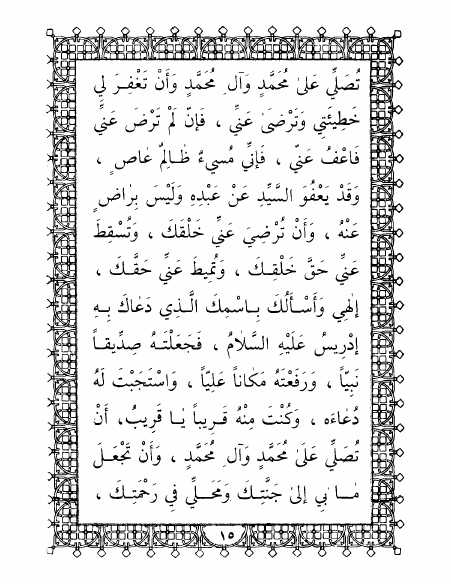 تُصَلِّيَ عَلىٰ مُحَمَّدٍ وَآلِ مُحَمَّدٍ وَأَنْ تَغْفِرَ لِي
خَطِيئَتِي وَتَرْضىٰ عَنِّي ، فَإنّ لَمْ تَرْضَ عَنِّي
فَاعْفُ عَنِّي ، فَإنِّي مُسِيءٌ ظَـالِمٌ عَاصٍ ،
وَقَدْ يَعْفُوَ السَّيِّدِ عَنْ عَبْدِهِ وَلَيْسَ بِرَاضٍ
عَنْهُ ، وَأَنْ تُرْضِيَ عَنِّي خَلْقِكَ ، وَتُسْقِطَ
عَنِّي حَقَّ خَلْقِـكَ ، وَتُمِيطَ عَنِّي حَقَّـكَ ،
إلٰهِي وَأَسْـأَلُكَ بِـاسْمِكَ الَّـذِي دَعَاكَ بِـهِ
إدْرِيسُ عَلَيْهِ السَّلَامُ ، فَجَعَلْتَـهُ صِدِّيقـاً
نَبِيّاً ، وَرَفَعْتَهُ مَكَاناً عَلِيّاً ، وَاسْتَجَبْتَ لَهُ
دُعَاءَه ، وَكُنْتَ مِنْهُ قَـرِيباً يَـا قَرِيبُ، أَنْ
تُصَلِّيَ عَلىٰ مُحَمَّدٍ وَآلِ مُحَمَّدٍ ، وَأَنْ تَجْعَـلَ
مَـابِي إلىٰ جَنَّتِـكَ وَمَحَـلِّي فِي رَحْمَتِـكَ ،
١٥